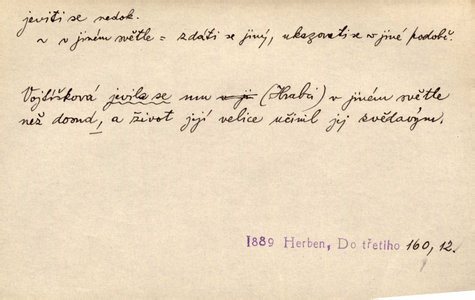 jeviti se nedok.
~ v jiném světle = zdáti se jiný, ukazovati se v jiné podobě.
Vojtíšková jevila se mu v ji (Hrabá) v jiném světle
než dosud, a život její velice učinil jej zvědavým.
1889 Herben, Do třetího 160, 12.